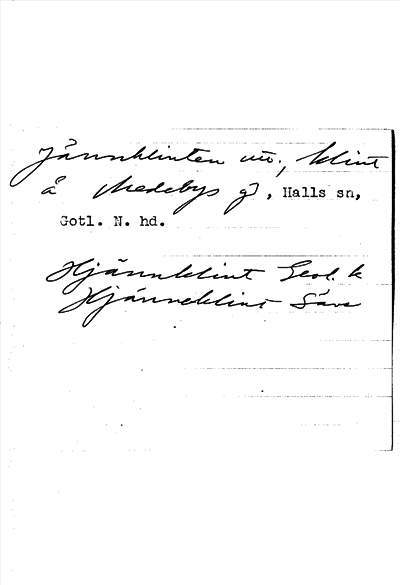 Jännklinten utt., klint
å Medebys gd, Halls sn,
Gotl. N. hd.
Hjännklint Geol. k
Hjänneklint Säve